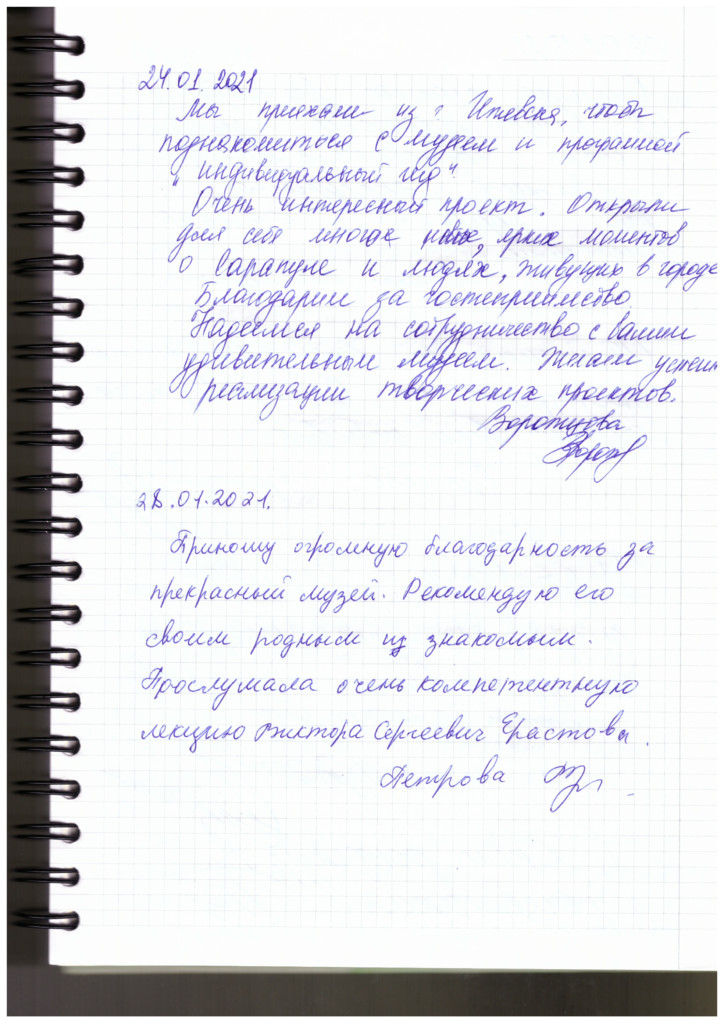 24.01.2021
Мы приехали из г. Ижевска, чтобы
познакомиться с музеем и програмой
"индивидуальный гид"
Очень интересный проект. Открыли
для себя много новых, ярких моментов
о Сарапуле и людях, живущих в городе
Благодарим за гостеприимство.
Надеемся на сотрудничество с вашим
удивительным музеем. Желаем успеш
реализации творческих проектов.
28.01.2021.
Приношу огромную благодарность за
прекрасный музей. Рекомендую его
своим родным и знакомым.
Прослушала очень компетентную
лекцию Виктора Сергеевич Ерастова.
Петрова